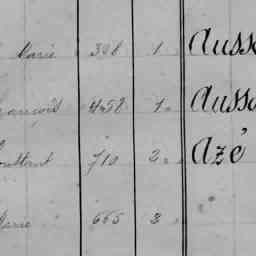 Marie 398 1 Auss
rançois 4458 1.
Auss
onstant 710 2. Azé
Marie 665 3